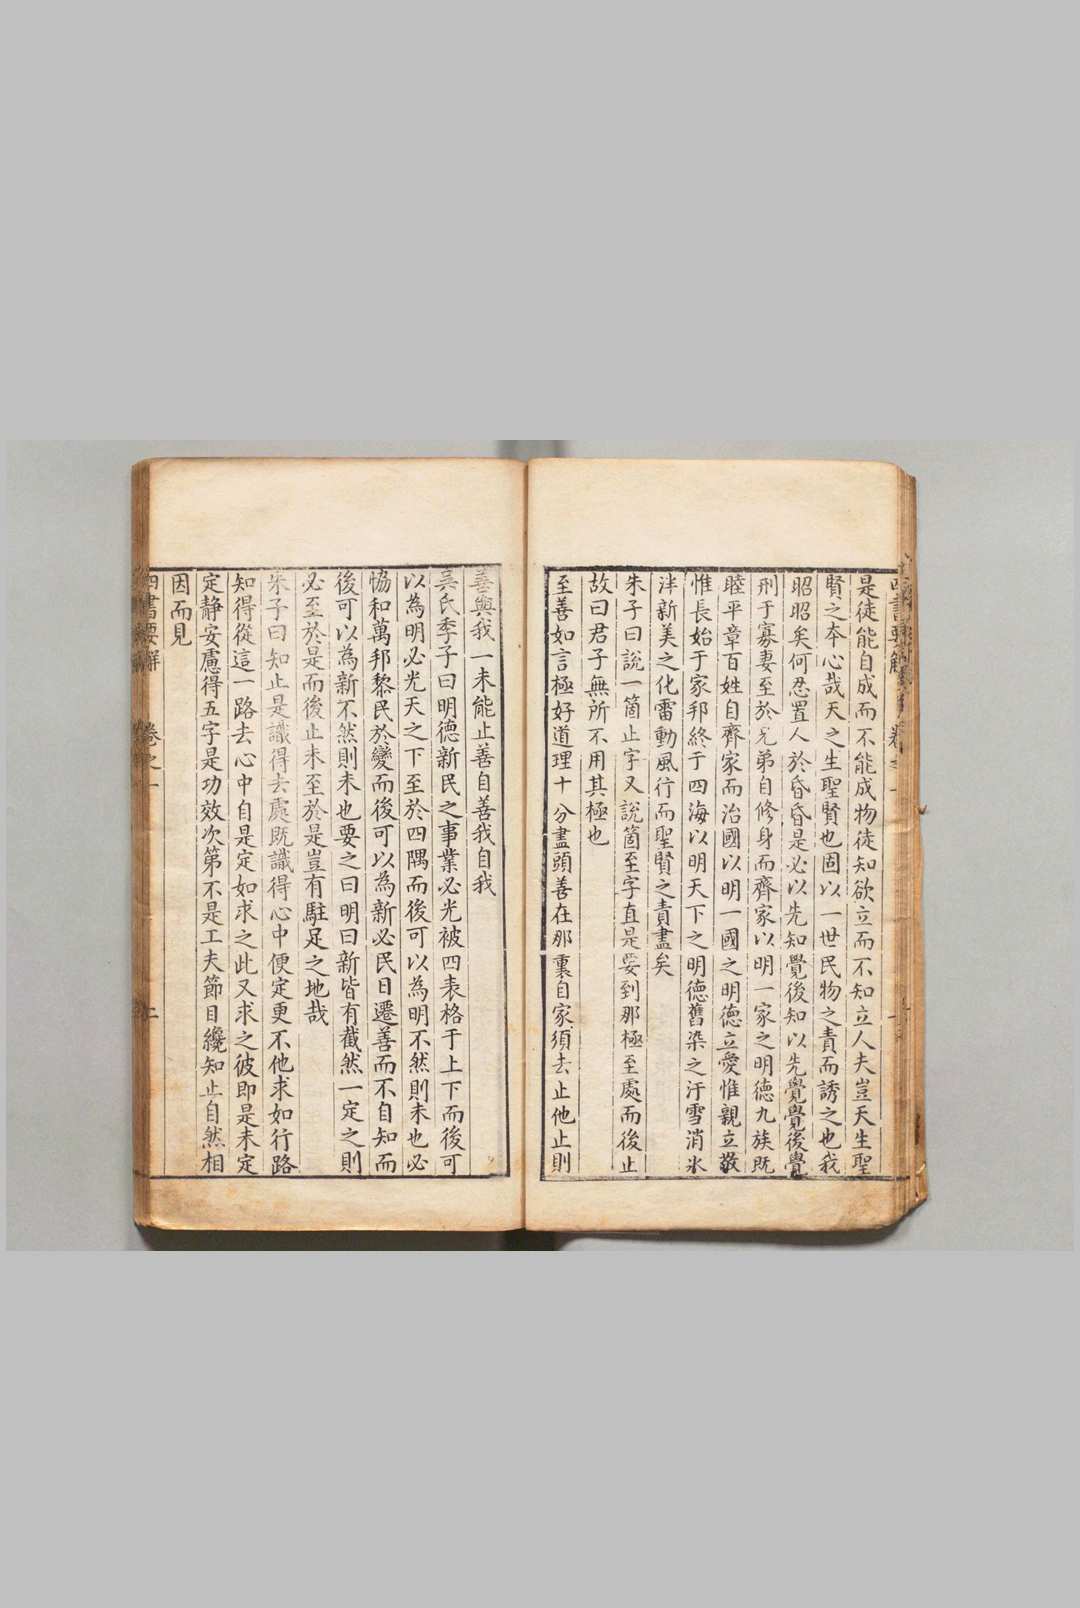 是徒能自成而不能成物徒知欲立而不知立人夫豈天生聖
賢之本心哉天之生聖賢也固以一世民物之責而誘之也我
昭昭矣何忍置人於昏昏是必以先知覺後知以先覺覺後覺
刑于寡妻至於兄弟自修身而齊家以明一家之明德九族既
睦平章百姓自齊家而治國以明一國之明德立愛惟親立敬
惟長始于家邦終于四海以明天下之明德舊染之汙雪消氷
泮新美之化雷動風行而聖賢之責盡矣
朱子曰說一箇止字又說箇至字直是要到那極至處而後止
故曰君子無所不用其極也
至善如言極好道理十分盡頭善在那裏自家須去止他止則
善與我一未能止善自善我自我
吳氏季子曰明德新民之事業必光被四表格于上下而後可
以為明必光天之下至於四隅而後可以為明不然則未也必
協和萬邦黎民於變而後可以為新必民日遷善而不自知而
後可以為新不然則未也要之曰明曰新皆有截然一定之則
必至於是而後止未至於是豈有駐足之地哉
朱子曰知止是識得去處既識得心中便定更不他求如行路
知得從這一路去心中自是定如求之此又求之彼即是未定
定靜安慮得五字是功效次第不是工夫節目纔知止自然相
因而見
四書要解 卷之一 二